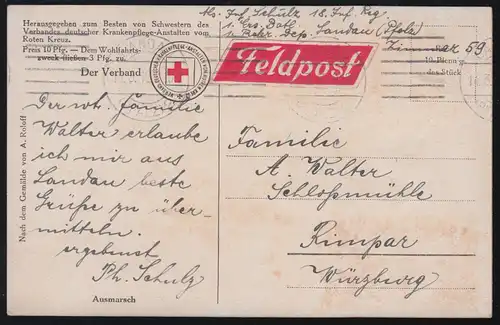 Herausgegeben zum Besten von Schwestern des
Verbandes deutscher Krankenpflege-Anstalten vom
Roten Kreuz.
Preis 10 Pfg. — Dem Wohlfahrts-
zweck fließen 3 Pfg. zu.
Der Verband
Abs. Inf. Schulz 18. Inf. Reg
1. Ers. Batl.
Rekr. Dep. Landau (Pfalz)
Zimmer 59
Feldpost
10 Pfennig
das Stück
Der wt. Familie
Walter erlaube
ich mir aus
Landau beste
Grüße zu über-
mitteln.
ergebenst
Ph. Schulz
Familie
A. Walter
Schloßmühle
Rimpar
Würzburg
Nach dem Gemälde von A. Roloff
Ausmarsch